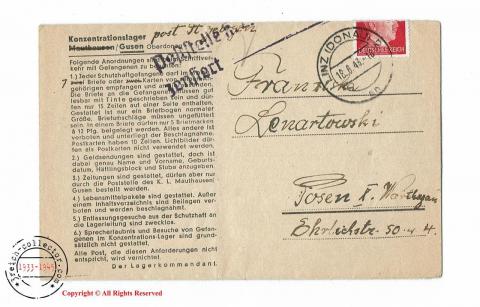 Konzentrationslager
Mauthausen / Gusen Oberdonau
Folgende Anordnungen sind beim Schriftverkehr
kehr mit Gefangenen zu beachten:
1.) Jeder Schutzhaftgefangene darf im Monat
zwei Briefe oder zwei Karten von seinen An-
gehörigen empfangen und an sie absenden.
Die Briefe an die Gefangenen müssen gut
lesbar mit Tinte geschrieben sein und dür-
fen nur 15 Zeilen auf einer Seite enthalten.
Gestattet ist nur ein Briefbogen normaler
Größe. Briefumschläge müssen ungefüttert
sein. In einem Briefe dürfen nur 5 Briefmarken
à 12 Pfg. beigelegt werden. Alles andere ist
verboten und unterliegt der Beschlagnahme.
Postkarten haben 10 Zeilen. Lichtbilder dür-
fen als Postkarten nicht verwendet werden.
2.) Geldsendungen sind gestattet, doch ist
dabei genau Name und Vorname, Geburts-
datum, Häftlingsblock und Stube anzugeben.
3.) Zeitungen sind gestattet, dürfen aber nur
durch die Poststelle des K. L. Mauthausen/
Gusen bestellt werden.
4.) Lebensmittelpakete sind gestattet. Außer
einem Inhaltsverzeichnis sind Beilagen ver-
boten und werden beschlagnahmt.
5.) Entlassungsgesuche aus der Schutzhaft an
die Lagerleitung sind zwecklos.
6.) Sprecherlaubnis und Besuche von Gefan-
genen im Konzentrations-Lager sind grund-
sätzlich nicht gestattet.
Alle Post, die diesen Anforderungen nicht
entspricht, wird vernichtet.
Der Lagerkommandant.
Poststelle
zensiert
LINZ (DONAU)
DEUTSCHES REICH
Franziska
Lenartowski
Posen I. Warthegau
Ehrlichstr. 50 w 4.
3reich-collector.com
1933-1945
Copyright © All Rights Reserved